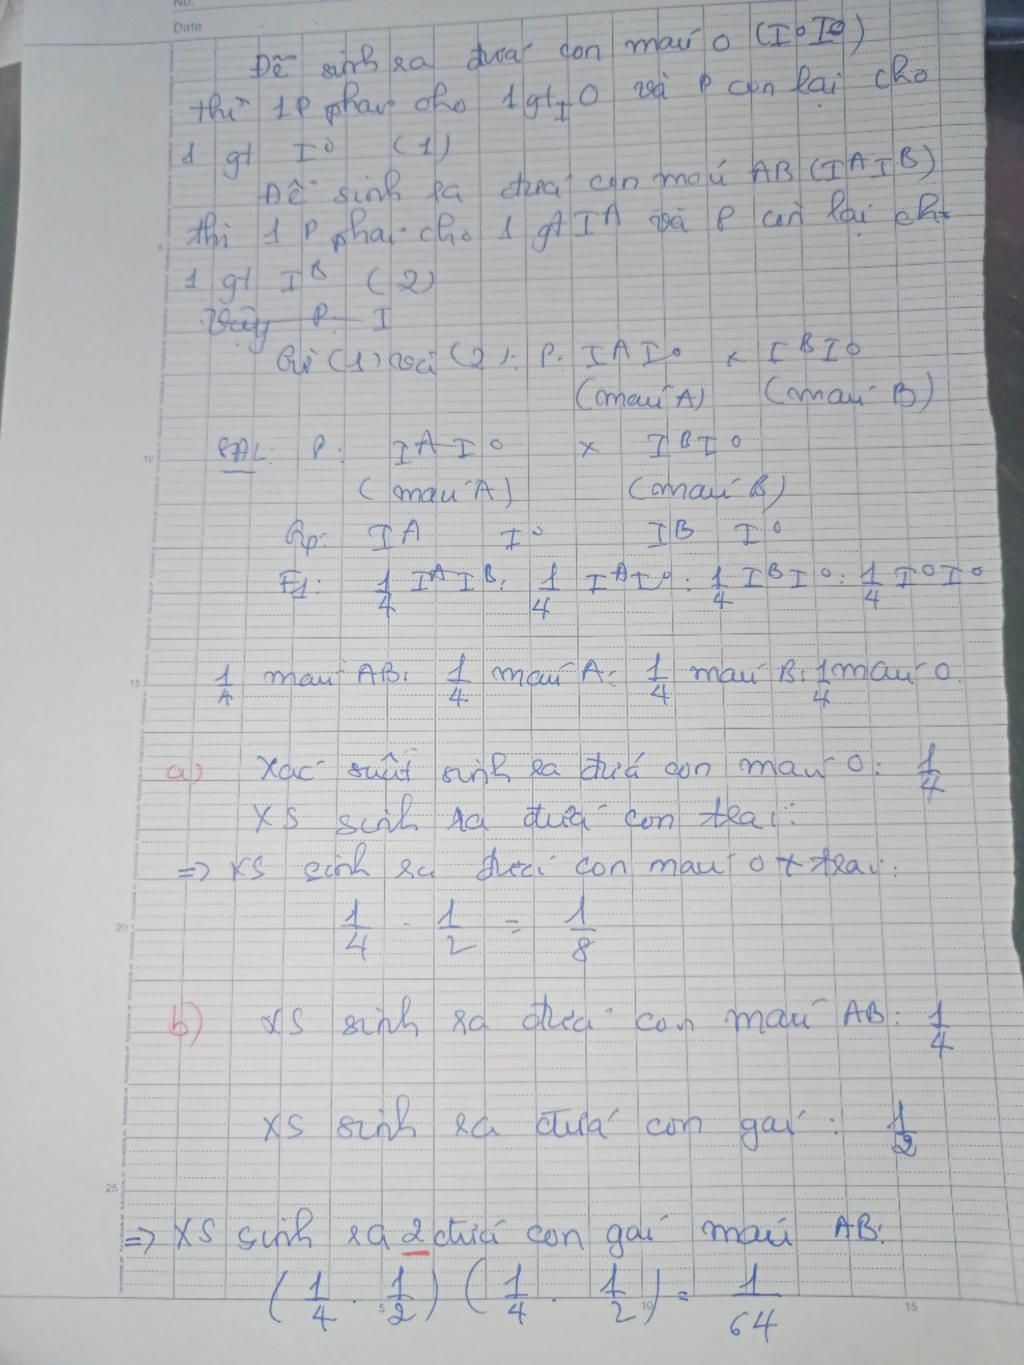 No.
Date
Để sinh ra đứa con máu O (I⁰I⁰)
thì 1P phải cho 1 gt I⁰ và P còn lại cho
1 gt I⁰ (1)
Để sinh ra đứa con máu AB (IᴬIᴮ)
thì 1 P phải cho 1 gt Iᴬ và P còn lại cho
1 gt Iᴮ (2)
Vậy P: I
Từ (1) và (2): P: IᴬI⁰ x IᴮI⁰
(máu A) (máu B)
SĐL: P: IᴬI⁰ x IᴮI⁰
(máu A) (máu B)
Gp: Iᴬ I⁰ Iᴮ I⁰
F1: 1/4 IᴬIᴮ: 1/4 IᴬI⁰: 1/4 IᴮI⁰: 1/4 I⁰I⁰
1/4 máu AB: 1/4 máu A: 1/4 máu B: 1/4 máu O
a) Xác suất sinh ra đứa con máu O: 1/4
XS sinh ra đứa con trai:
=> XS sinh ra đứa con máu O + trai:
1/4 . 1/2 = 1/8
b) XS sinh ra đứa con máu AB: 1/4
XS sinh ra đứa con gái: 1/2
=> XS sinh ra 2 đứa con gái máu AB:
(1/4 . 1/2) (1/4 . 1/2) = 1/64
5
10
15
20
25
5
10
15